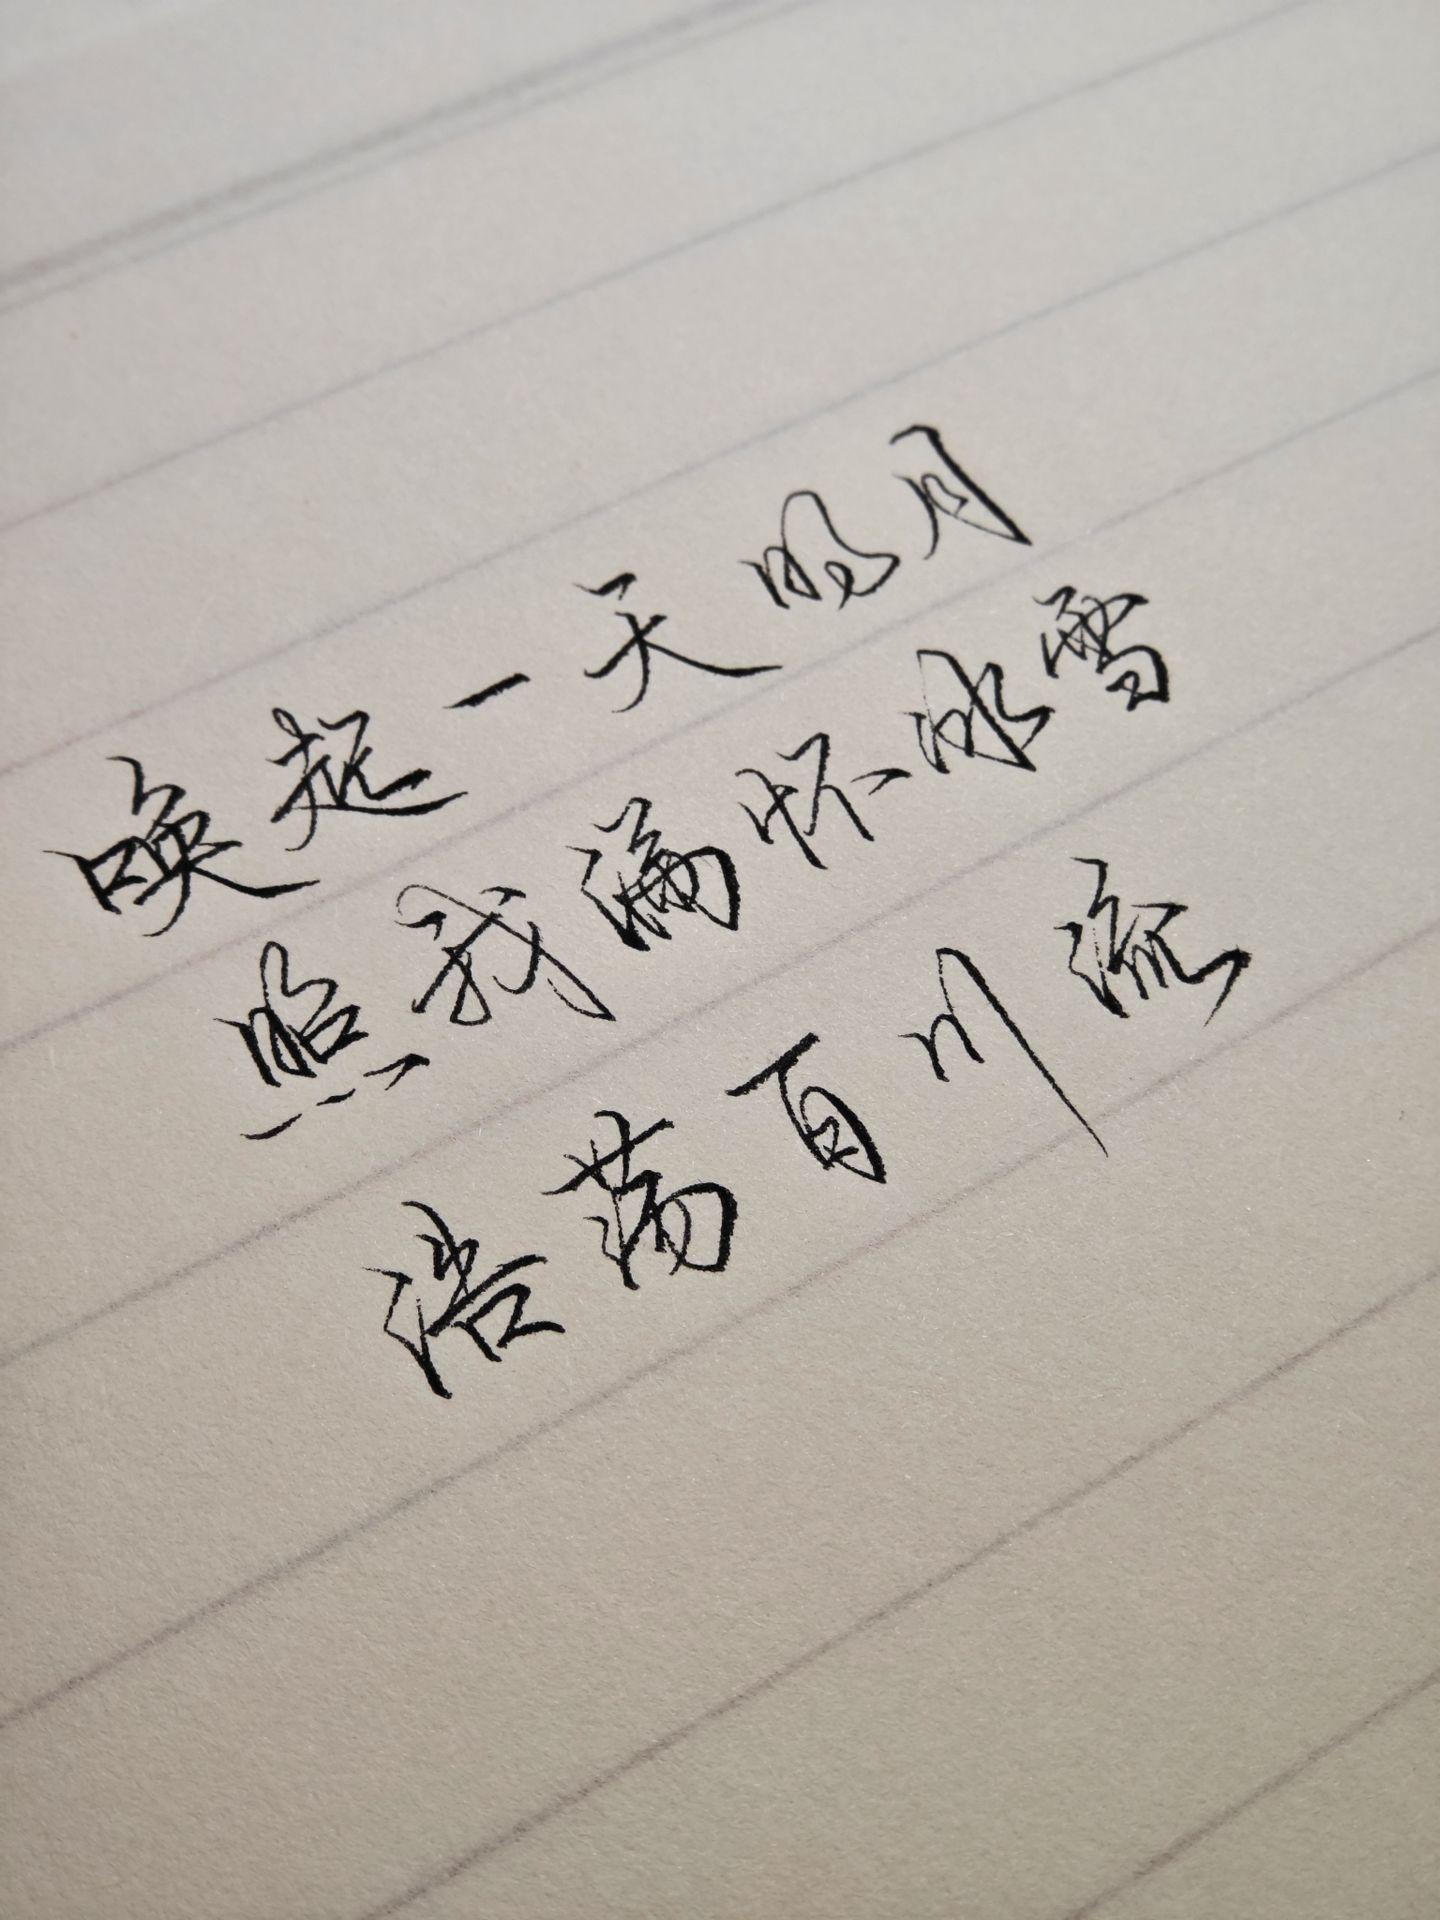 唤起一天明月
照我满怀冰雪
浩荡百川流